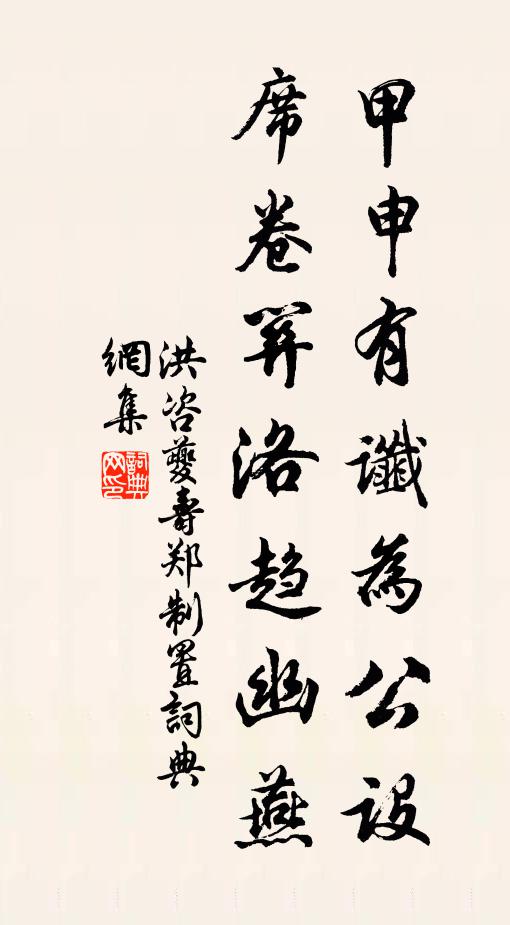 甲申有讖為公設
席卷笄洛趨幽燕
洪咨夔壽郑制置詞典
網集
詞典網印